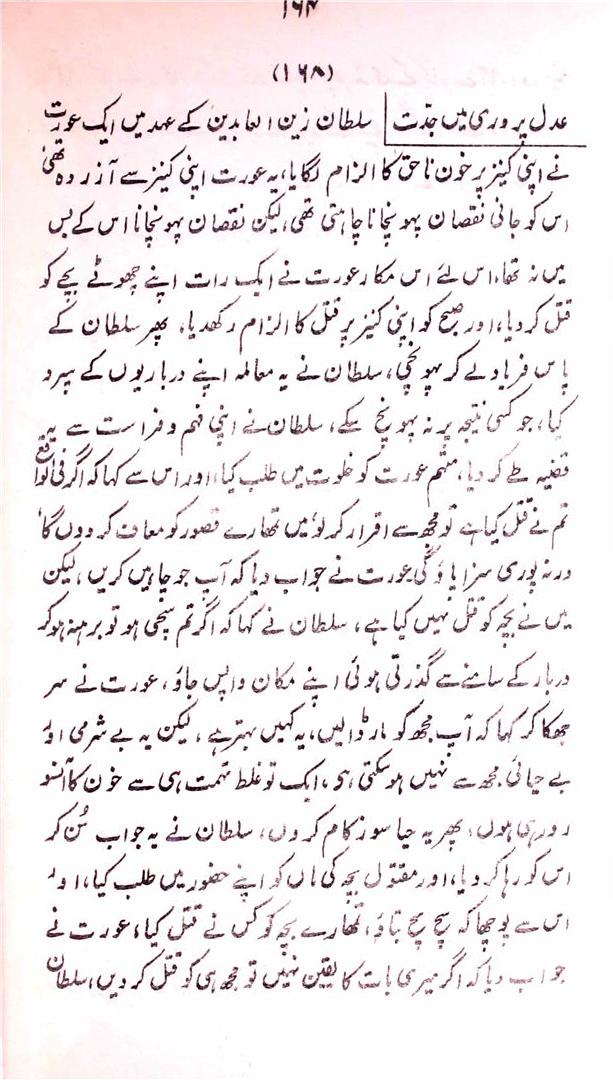 ۱۶۴
(۱۶۸)
عدل پروری میں جدّت سلطان زین العابدین کے عہد میں ایک عورت
نے اپنی کنیز پر خون ناحق کا الزام لگایا، یہ عورت اپنی کنیز سے آزردہ تھی
اس کو جانی نقصان پہونچانا چاہتی تھی، لیکن نقصان پہونچانا اس کے بس
میں نہ تھا، اس لئے اس مکار عورت نے ایک رات اپنے چھوٹے بچے کو
قتل کر دیا، اور صبح کو اپنی کنیز پر قتل کا الزام رکھدیا، پھر سلطان کے
پاس فریاد لے کر پہونچی، سلطان نے یہ معاملہ اپنے درباریوں کے سپرد
کیا، جو کسی نتیجہ پر نہ پہونچ سکے، سلطان نے اپنی فہم و فراست سے یہ
قضیہ طے کر دیا، متہم عورت کو خلوت میں طلب کیا، اور اس سے کہا کہ اگر فی الواقع
تم نے قتل کیا ہے تو مجھ سے اقرار کر لو میں تمھارے قصور کو معاف کر دوں گا،
ورنہ پوری سزا پاؤگی عورت نے جواب دیا کہ آپ جو چاہیں کریں، لیکن
میں نے بچہ کو قتل نہیں کیا ہے، سلطان نے کہا کہ اگر تم سچی ہو تو برہنہ ہو کر
دربار کے سامنے سے گذرتی ہوئی اپنے مکان واپس جاؤ، عورت نے سر
جھکا کر کہا کہ آپ مجھ کو مار ڈالیں، یہ کہیں بہتر ہے، لیکن یہ بے شرمی اور
بے حیائی مجھ سے نہیں ہو سکتی ہی، ایک تو غلط تہمت ہی سے خون کا آنسو
رو رہی ہوں، پھر یہ حیا سوز کام کروں، سلطان نے یہ جواب سُن کر
اس کو رہا کر دیا، اور مقتول بچہ کی ماں کو اپنے حضور میں طلب کیا، اور
اس سے پوچھا کہ سچ سچ بتاؤ، تمھارے بچہ کو کس نے قتل کیا، عورت نے
جواب دیا کہ اگر میری بات کا یقین نہیں تو مجھ ہی کو قتل کر دیں، سلطان